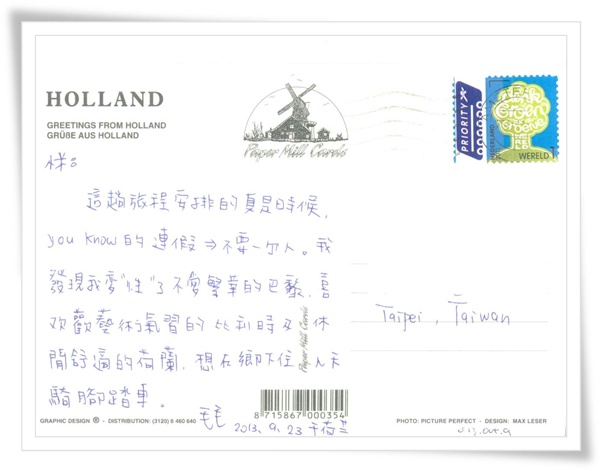 HOLLAND
GREETINGS FROM HOLLAND
GRÜBE AUS HOLLAND
Paper Mill Cards
PRIORITY
NEDERLAND
WERELD 1
這趟旅程安排的真是時候,
you know的連假⇒不要一個人。我
發現我變"性"了不愛繁華的巴黎,喜
歡歡藝術氣習的比利時及休
閒舒逼的荷蘭,想在鄉下住,天天
騎腳踏車。
毛毛
2013.9.23 于荷兰
Taipei, Taiwan
Paper Mill Cards
8 715867 000354
GRAPHIC DESIGN ® - DISTRIBUTION: (3120) 6 460 640
PHOTO: PICTURE PERFECT - DESIGN: MAX LESER